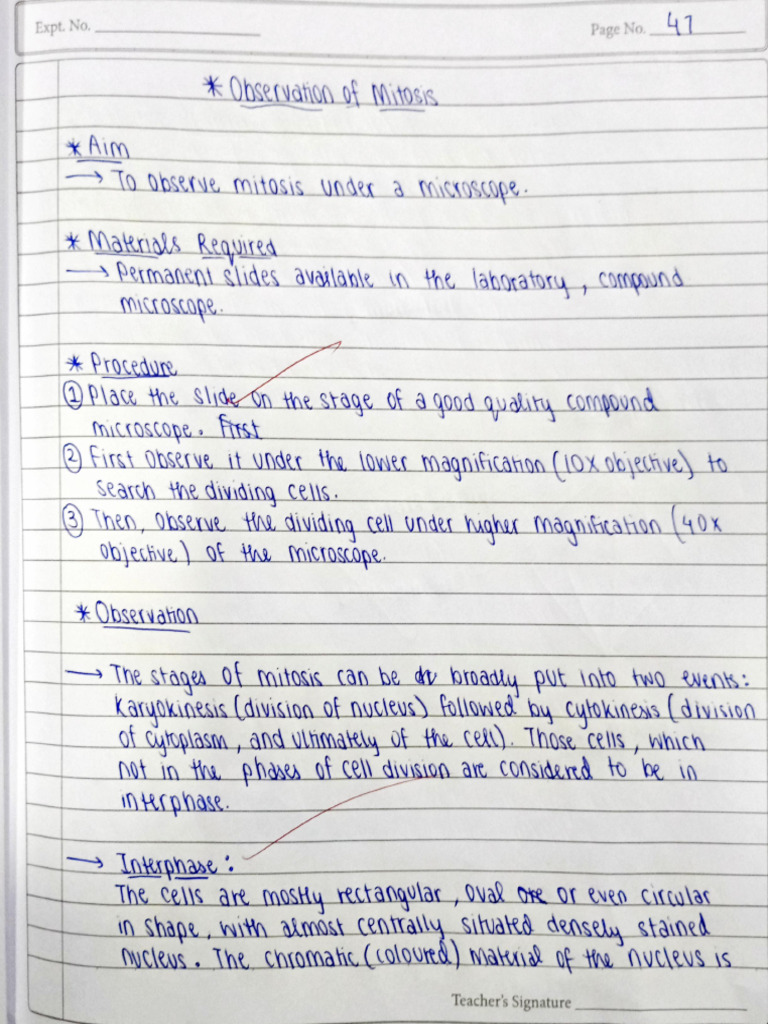 Expt. No.
Page No. 47
* Observation of Mitosis
* Aim
→ To observe mitosis under a microscope.
* Materials Required
→ Permanent slides available in the laboratory, compound
microscope.
* Procedure
① Place the slide on the stage of a good quality compound
microscope. First
② First observe it under the lower magnification (10x objective) to
search the dividing cells.
③ Then, observe the dividing cell under higher magnification (40x
objective) of the microscope.
* Observation
→ The stages of mitosis can be broadly put into two events:
Karyokinesis (division of nucleus) followed by cytokinesis (division
of cytoplasm, and ultimately of the cell). Those cells, which
not in the phases of cell division are considered to be in
interphase.
→ Interphase:
The cells are mostly rectangular, oval or or even circular
in shape, with almost centrally situated densely stained
nucleus. The chromatic (coloured) material of the nucleus is
Teacher's Signature